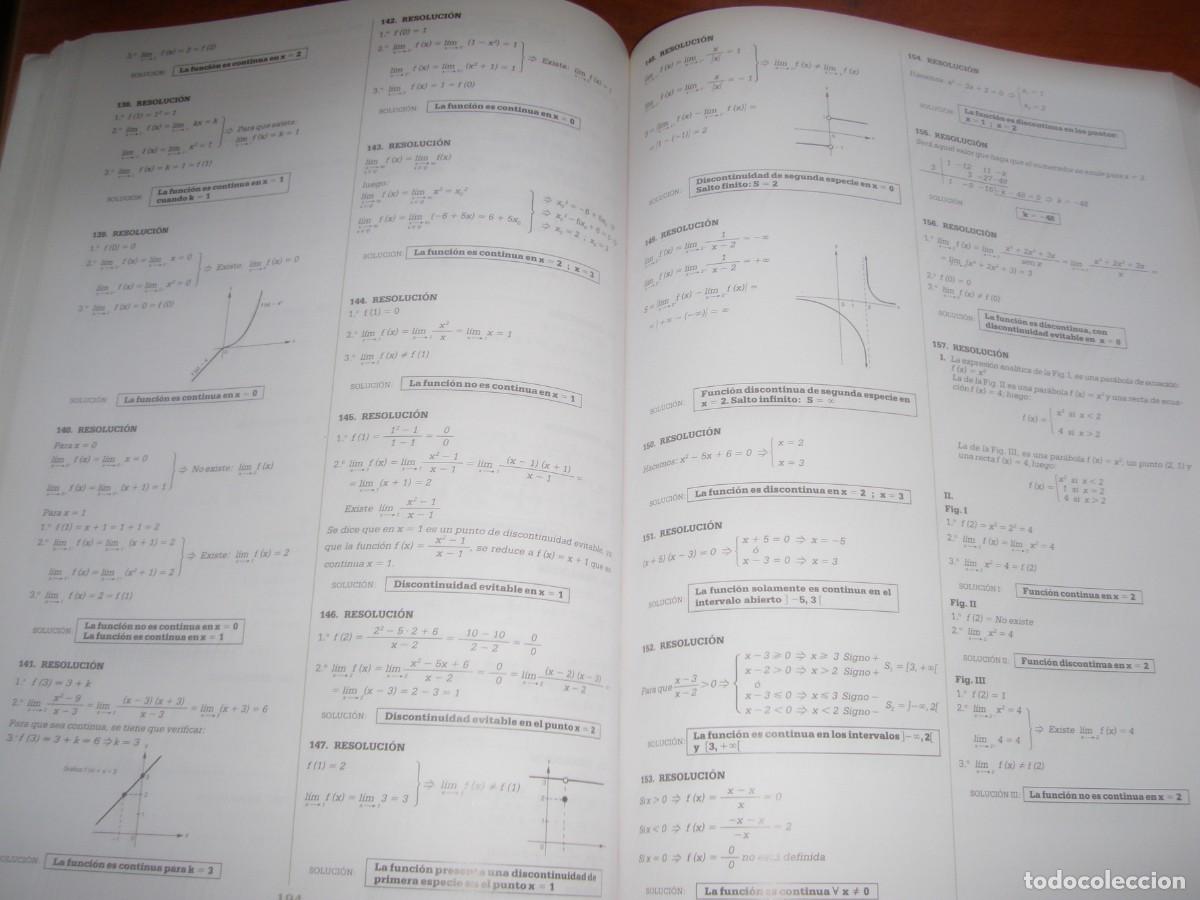 3.º lím f (x) = 2 = f (2)
SOLUCIÓN: La función es continua en x = 2
138. RESOLUCIÓN
1.º f (1) = 1² = 1
2.º lím f (x) = lím kx = k
lím f (x) = lím x² = 1
⇒ Para que exista:
lím f (x) = k = 1
3.º lím f (x) = k = 1 = f (1)
SOLUCIÓN: La función es continua en x = 1
cuando k = 1
139. RESOLUCIÓN
1.º f (0) = 0
2.º lím f (x) = lím x = 0
lím f (x) = lím x² = 0
⇒ Existe: lím f (x) = 0
3.º lím f (x) = 0 = f (0)
SOLUCIÓN: La función es continua en x = 0
140. RESOLUCIÓN
Para x = 0
lím f (x) = lím x = 0
lím f (x) = lím (x + 1) = 1
⇒ No existe: lím f (x)
Para x = 1
1.º f (1) = x + 1 = 1 + 1 = 2
2.º lím f (x) = lím (x + 1) = 2
lím f (x) = lím (x² + 1) = 2
⇒ Existe: lím f (x) = 2
3.º lím f (x) = 2 = f (1)
SOLUCIÓN: La función no es continua en x = 0
La función es continua en x = 1
141. RESOLUCIÓN
1.º f (3) = 3 + k
2.º lím x² − 9 / x − 3 = lím (x − 3) (x + 3) / x − 3 = lím (x + 3) = 6
Para que sea continua, se tiene que verificar:
3.º f (3) = 3 + k = 6 ⇒ k = 3
SOLUCIÓN: La función es continua para k = 3
142. RESOLUCIÓN
1.º f (0) = 1
2.º lím f (x) = lím (1 − x²) = 1
lím f (x) = lím (x² + 1) = 1
⇒ Existe: lím f (x) = 1
3.º lím f (x) = 1 = f (0)
SOLUCIÓN: La función es continua en x = 0
143. RESOLUCIÓN
lím f (x) = lím f(x)
luego:
lím f (x) = lím x² = x₀²
lím f (x) = lím (−6 + 5x) = 6 + 5x₀
⇒ x₀² = −6 + 5x₀
⇒ x₀² − 5x₀ + 6 =
⇒ x₀ = 2 ; x₀ = 3
SOLUCIÓN: La función es continua en x = 2 ; x = 3
144. RESOLUCIÓN
1.º f (1) = 0
2.º lím f (x) = lím x² / x = lím x = 1
3.º lím f (x) ≠ f (1)
SOLUCIÓN: La función no es continua en x = 1
145. RESOLUCIÓN
1.º f (1) = 1² − 1 / 1 − 1 = 0 / 0
2.º lím f (x) = lím x² − 1 / x − 1 = lím (x − 1) (x + 1) / x − 1 =
= lím (x + 1) = 2
Existe lím x² − 1 / x − 1
Se dice que en x = 1 es un punto de discontinuidad evitable,
que la función f (x) = x² − 1 / x − 1, se reduce a f (x) = x + 1 que es
continua x = 1.
SOLUCIÓN: Discontinuidad evitable en x = 1
146. RESOLUCIÓN
1.º f (2) = 2² − 5 · 2 + 6 / x − 2 = 10 − 10 / 2 − 2 = 0 / 0
2.º lím f (x) = lím x² − 5x + 6 / x − 2 = 0 / 0 = lím (x − 2) (x − 3) / x − 2 =
= lím (x − 3) = 2 − 3 = 1
SOLUCIÓN: Discontinuidad evitable en el punto x = 2
147. RESOLUCIÓN
f (1) = 2
lím f (x) = lím 3 = 3
⇒ lím f (x) ≠ f (1)
SOLUCIÓN: La función presenta una discontinuidad de
primera especie en el punto x = 1
194
148. RESOLUCIÓN
lím f (x) = lím x / |x| = 1
lím f (x) = lím x / |x| = − 1
⇒ lím f (x) ≠ lím f (x)
S = |lím f (x) − lím f (x)| =
= |1 − (−1)| = 2
SOLUCIÓN: Discontinuidad de segunda especie en x = 0
Salto finito: S = 2
149. RESOLUCIÓN
lím f (x) = lím 1 / x − 2 = − ∞
lím f (x) = lím 1 / x − 2 = + ∞
S = |lím f (x) − lím f (x)| =
= |+ ∞ − (−∞)| = ∞
SOLUCIÓN: Función discontinua de segunda especie en
x = 2. Salto infinito: S = ∞
150. RESOLUCIÓN
Hacemos: x² − 5x + 6 = 0 ⇒ x = 2
x = 3
SOLUCIÓN: La función es discontinua en x = 2 ; x = 3
151. RESOLUCIÓN
(x + 5) (x − 3) = 0 ⇒ x + 5 = 0 ⇒ x = −5
ó
x − 3 = 0 ⇒ x = 3
SOLUCIÓN: La función solamente es continua en el
intervalo abierto ] −5, 3 [
152. RESOLUCIÓN
Para que x − 3 / x − 2 > 0 ⇒
x − 3 ⩾ 0 ⇒ x ⩾ 3 Signo +
x − 2 > 0 ⇒ x > 2 Signo + S₁ = [3, +∞[
ó
x − 3 ⩽ 0 ⇒ x ⩽ 3 Signo −
x − 2 < 0 ⇒ x < 2 Signo − S₂ = ]−∞, 2[
SOLUCIÓN: La función es continua en los intervalos ]−∞, 2[
y [3, +∞[
153. RESOLUCIÓN
Si x > 0 ⇒ f (x) = x − x / x = 0
Si x < 0 ⇒ f (x) = −x − x / −x = 2
Si x = 0 ⇒ f (x) = 0 / 0 no está definida
SOLUCIÓN: La función es continua ∀ x ≠ 0
154. RESOLUCIÓN
Hacemos: x² − 3x + 2 = 0 ⇒ x₁ = 1
x₂ = 2
SOLUCIÓN: La función es discontinua en los puntos:
x = 1 ; x = 2
155. RESOLUCIÓN
Será aquel valor que haga que el numerador se anule para x = 3.
1 −12 11 −k
3 3 −27 −48
1 −9 −16 −k − 48 = 0 ⇒ k = −48
SOLUCIÓN: k = −48
156. RESOLUCIÓN
1.º lím f (x) = lím x³ + 2x² + 3x / sen x = lím x³ + 2x² + 3x / x =
= lím (x² + 2x² + 3) = 3
2.º f (0) = 0
3.º lím f (x) ≠ f (0)
SOLUCIÓN: La función es discontinua, con
discontinuidad evitable en x = 0
157. RESOLUCIÓN
I. La expresión analítica de la Fig. I, es una parábola de ecuación:
f (x) = x²
La de la Fig. II es una parábola f (x) = x² y una recta de ecua-
ción f (x) = 4; luego:
f (x) = x² si x < 2
4 si x > 2
La de la Fig. III, es una parábola f (x) = x²; un punto (2, 1) y
una recta f (x) = 4, luego:
f (x) = x² si x < 2
1 si x = 2
4 si x > 2
II.
Fig. I
1.º f (2) = x² = 2² = 4
2.º lím f (x) = lím x² = 4
3.º lím x² = 4 = f (2)
SOLUCIÓN I: Función continua en x = 2
Fig. II
1.º f (2) = No existe
2.º lím x² = 4
SOLUCIÓN II: Función discontinua en x = 2
Fig. III
1.º f (2) = 1
2.º lím x² = 4
lím 4 = 4
⇒ Existe lím f (x) = 4
3.º lím f (x) ≠ f (2)
SOLUCIÓN III: La función no es continua en x = 2
todocoleccion